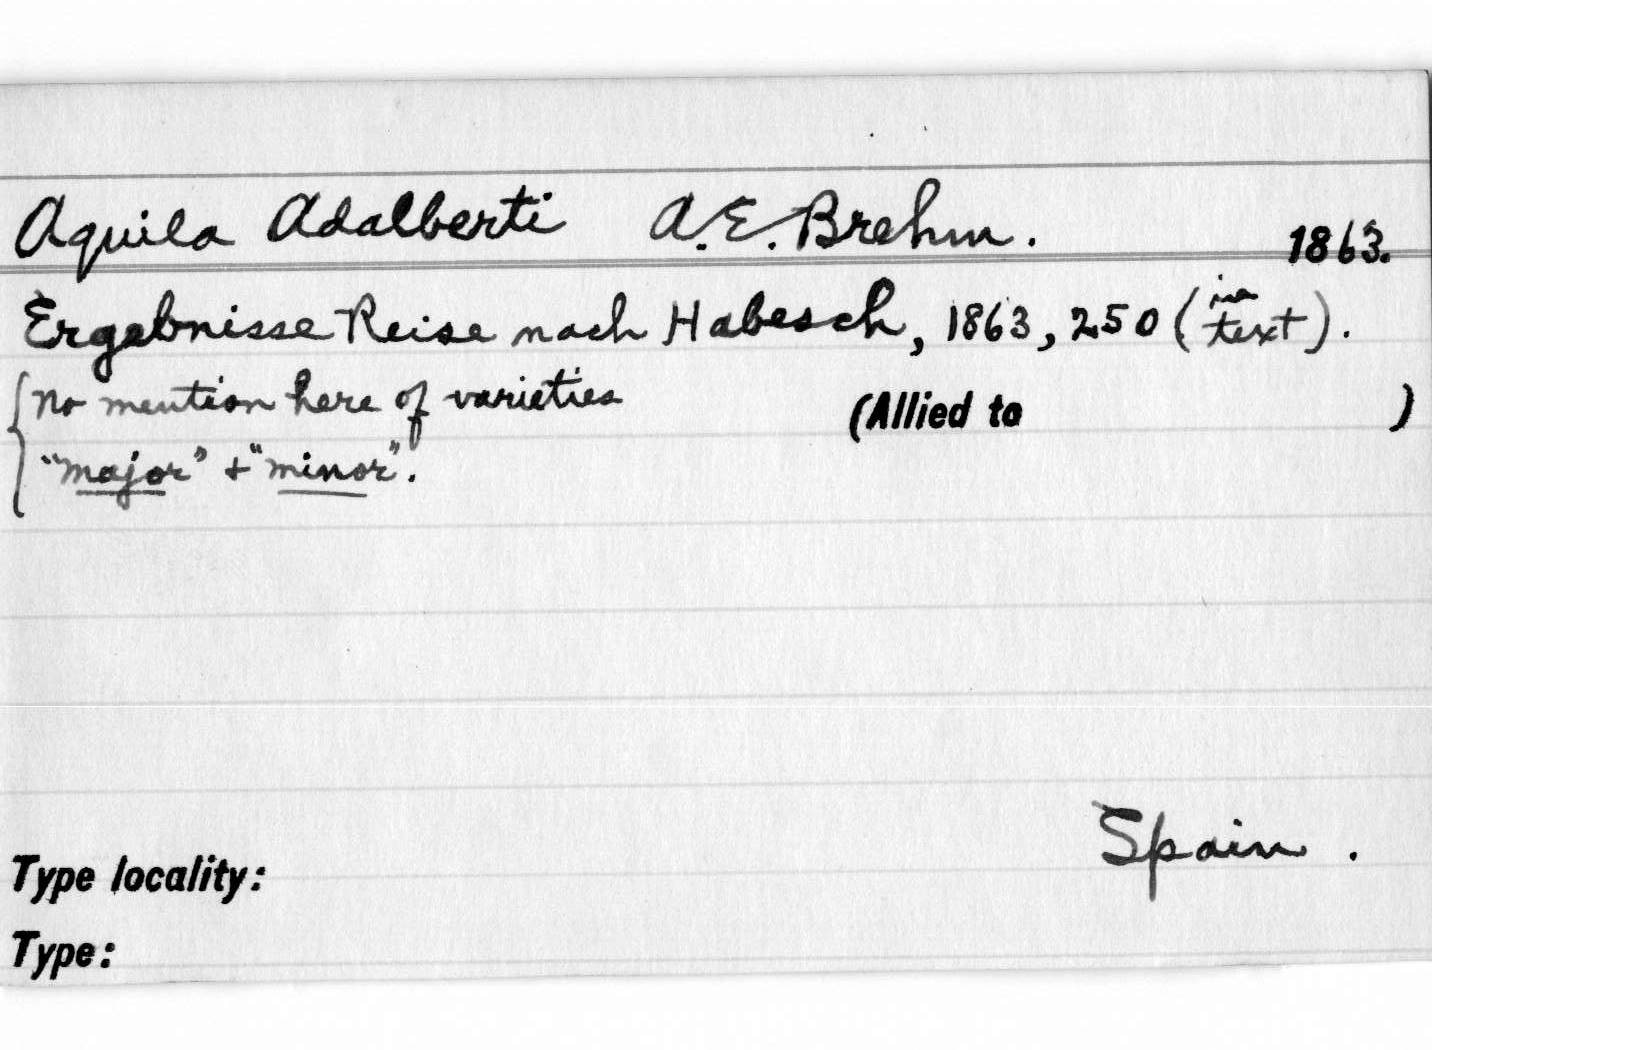 Aquila Adalberti A.E. Brehm. 1863.
Ergebnisse Reise nach Habesch, 1863, 250 (in text).
{ No mention here of varieties (Allied to )
"major" + "minor".
Spain.
Type locality:
Type: